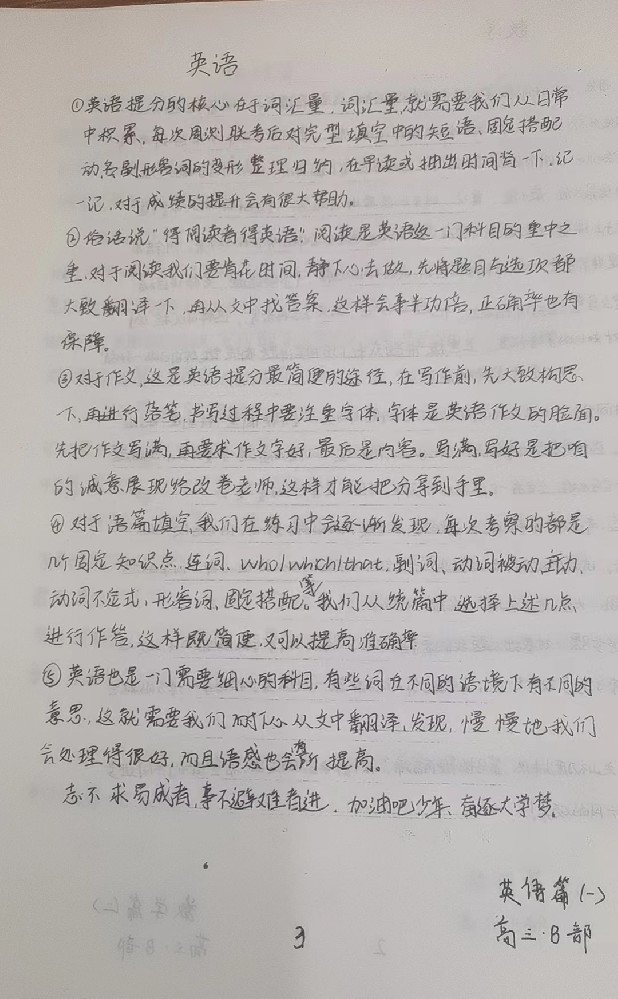 英语
①英语提分的核心在于词汇量，词汇量就需要我们从日常
中积累，每次周测联考后对完型填空中的短语、固定搭配
动名副形容词的变形整理归纳，在早读或抽出时间背一下，记
一记，对于成绩的提升会有很大帮助。
②俗话说“得阅读者得英语”，阅读是英语这一门科目的重中之
重，对于阅读我们要肯花时间，静下心去做，先将题目与选项都
大致翻译一下，再从文中找答案，这样会事半功倍，正确率也有
保障。
③对于作文，这是英语提分最简便的途径，在写作前，先大致构思一
下，再进行落笔，书写过程中要注重字体，字体是英语作文的脸面。
先把作文写满，再要求作文字好，最后是内容。写满，写好是把咱
的诚意展现给改卷老师，这样才能把分拿到手里。
④对于语篇填空，我们在练习中会逐渐发现，每次考察的都是
几个固定知识点，连词、who/which/that，副词、动词被动、主动，
动词不定式，形容词、固定搭配等。我们从统篇中选择上述几点
进行作答，这样既简便，又可以提高准确率
⑤英语也是一门需要细心的科目，有些词在不同的语境下有不同的
意思，这就需要我们耐下心从文中翻译，发现，慢慢地我们
会处理得很好，而且语感也会有所提高。
志不求易成者，事不避难者进。加油吧少年、奋逐大学梦。
英语篇(一)
高三·B部
3
2
数学篇(二)
高三·B部